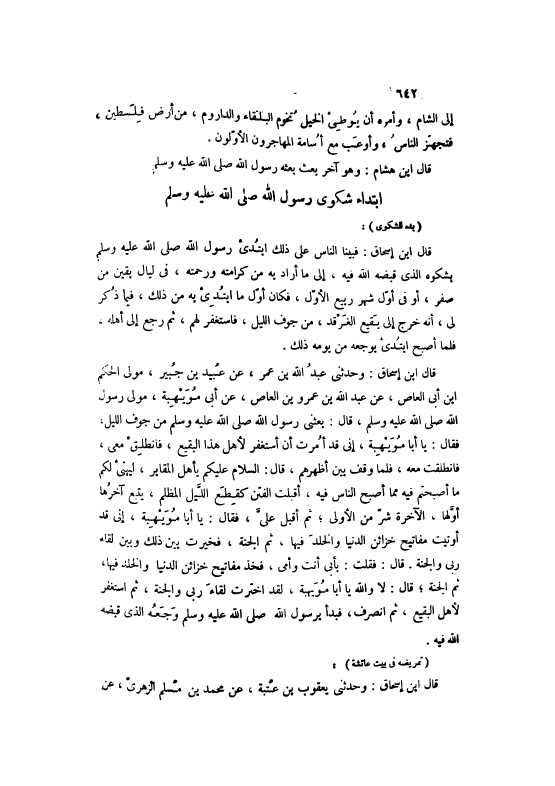 ٦٤٢
إلى الشام ، وأمره أن يُوطِئ الخيل تُخوم البلقاء والداروم ، من أرض فِلَسطين ،
فتجهَّز الناسُ ، وأوعَب مع أسامة المهاجرون الأوّلون .
قال ابن هشام : وهو آخر بعث بعثه رسول الله صلى الله عليه وسلم
ابتداء شكوى رسول الله صلى الله عليه وسلم
( بدء الشكوى ) :
قال ابن إسحاق : فبينا الناس على ذلك ابتُدئ رسول الله صلى الله عليه وسلم
بشكوه الذى قبضه الله فيه ، إلى ما أراد به من كرامته ورحمته ، فى ليال بقين من
صفر ، أو فى أوّل شهر ربيع الأوّل ، فكان أوّل ما ابتُدِئ به من ذلك ، فيما ذُكر
لى ، أنه خرج إلى بَقيع الغَرْقد ، من جوف الليل ، فاستغفر لهم ، ثم رجع إلى أهله .
فلما أصبح ابتُدئ بوجعه من يومه ذلك .
قال ابن إسحاق : وحدثنى عبدُ الله بن عمر ، عن عُبيد بن جُبير ، مولى الحكم
ابن أبى العاص ، عن عبد الله بن عمرو بن العاص ، عن أبى مُوَيْهبة ، مولى رسول
الله صلى الله عليه وسلم ، قال : بعثنى رسول الله صلى الله عليه وسلم من جوف الليل،
فقال : يا أبا مُوَيْهبة ، إنى قد أُمرت أن أستغفر لأهل هذا البقيع ، فانطلِقْ معى ،
فانطلقت معه ، فلما وقف بين أظهرهم ، قال : السلام عليكم يأهل المقابر ، ليهنئ لكم
ما أصبحتم فيه مما أصبح الناس فيه ، أقبلت الفتن كقِطَع اللَّيل المظلم ، يتبع آخرُها
أوَّلها ، الآخرة شرّ من الأولى ؛ ثم أقبل علىَّ ، فقال : يا أبا مُوَيْهبة ، إنى قد
أوتيت مفاتيح خزائن الدنيا والخلدَ فيها ، ثم الجنة ، فخيرت بين ذلك وبين لقاء
ربى والجنة . قال : فقلت : بأبى أنت وأمى ، فخذ مفاتيح خزائن الدنيا والخلد فيها،
ثم الجنة ؛ قال : لا والله يا أبا مُوَيهبة ، لقد اخترت لقاءَ ربى والجنة ، ثم استغفر
لأهل البقيع ، ثم انصرف، فبدأ برسول الله صلى الله عليه وسلم وَجَعُه الذى قبضه
الله فيه .
( تمريضه فى بيت عائشة ) :
قال ابن إسحاق : وحدثنى يعقوب بن عُتبة ، عن محمد بن مُسلم الزهرىّ ، عن